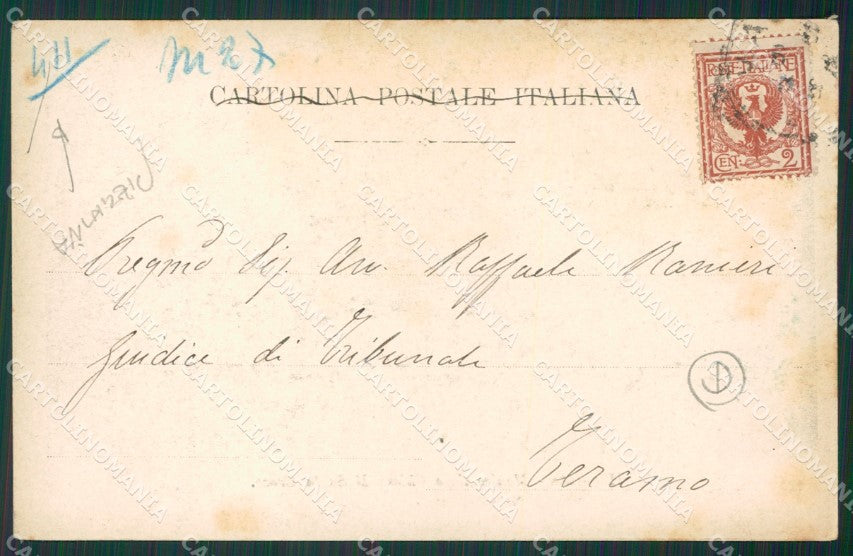 M 87
CARTOLINA POSTALE ITALIANA
POSTE ITALIANE
CENT. 2
Pregmo Sig. Avv. Raffaele Ranieri
Giudice di Tribunale
Teramo
CARTOLINOMANIA